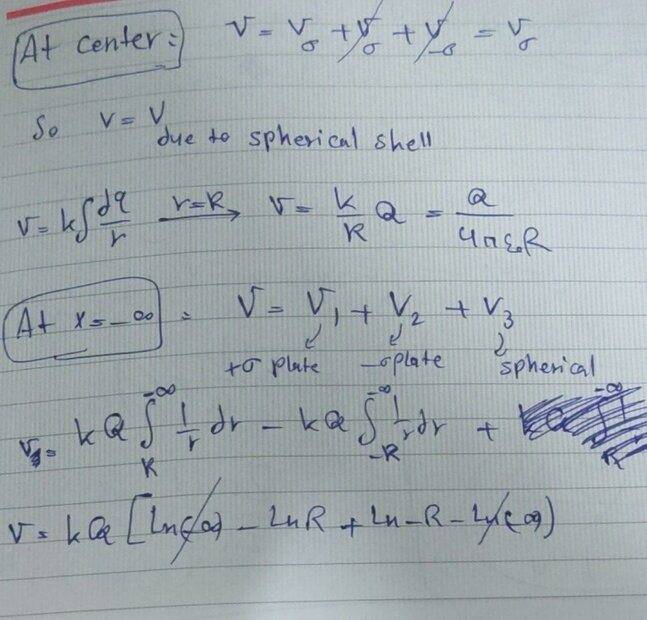 At center: V = Vσ + Vσ + V-σ = Vσ
So V = V due to spherical shell
V = k∫dq/r r=R → V = k/R Q = Q/4πε₀R
At x = -∞ : V = V₁ + V₂ + V₃
+σ plate -σ plate spherical
V = kQ ∫_R^-∞ 1/r dr - kQ ∫_-R^-∞ 1/r dr +
V = kQ [Ln(-∞) - LnR + Ln-R - Ln(-∞)]